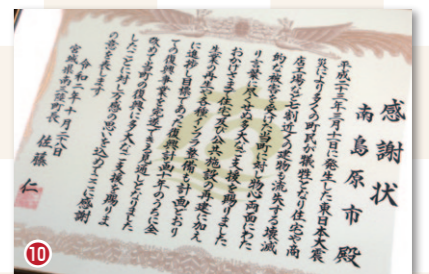 感謝状
南島原市 殿
平成二十三年三月十一日に発生した東日本大震
災により多くの町民が犠牲となり住宅や商
店工場など七割近くの建物が流失する壊滅
的な被害を受けた当町に対し物心両面にわた
り言葉に尽くせぬ多大なご支援を賜りました
おかげさまで住宅及び公共施設の再建に加え
生業の再生や各種インフラの整備も計画どおり
に進捗し目標であった復興計画十年のうちに全
ての復興事業を完遂できる見通しとなりました
改めて当町の復興に多大なご支援を賜りま
したことに対し万感の思いを込めここに感謝
の意を表します
令和二年十月二十八日
宮城県南三陸町長 佐藤 仁
10